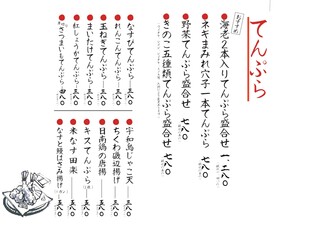 てんぷら
おすすめ
海老2本入りてんぷら盛合せ 一、二八〇
ネギまみれ穴子一本てんぷら 七八〇
野菜てんぷら盛合せ 七八〇
きのこ五種類てんぷら盛合せ 七八〇
なすびてんぷら 三八〇
れんこんてんぷら 三八〇
玉ねぎてんぷら 三八〇
まいたけてんぷら 三八〇
紅しょうがてんぷら 三八〇
さつまいもてんぷら 四八〇
宇和島じゃこ天 三八〇
ちくわ磯辺揚げ 三八〇
日南鶏の唐揚 五八〇
キスてんぷら 五八〇
米なす田楽 五八〇
なすと鰻はさみ揚げ 五八〇